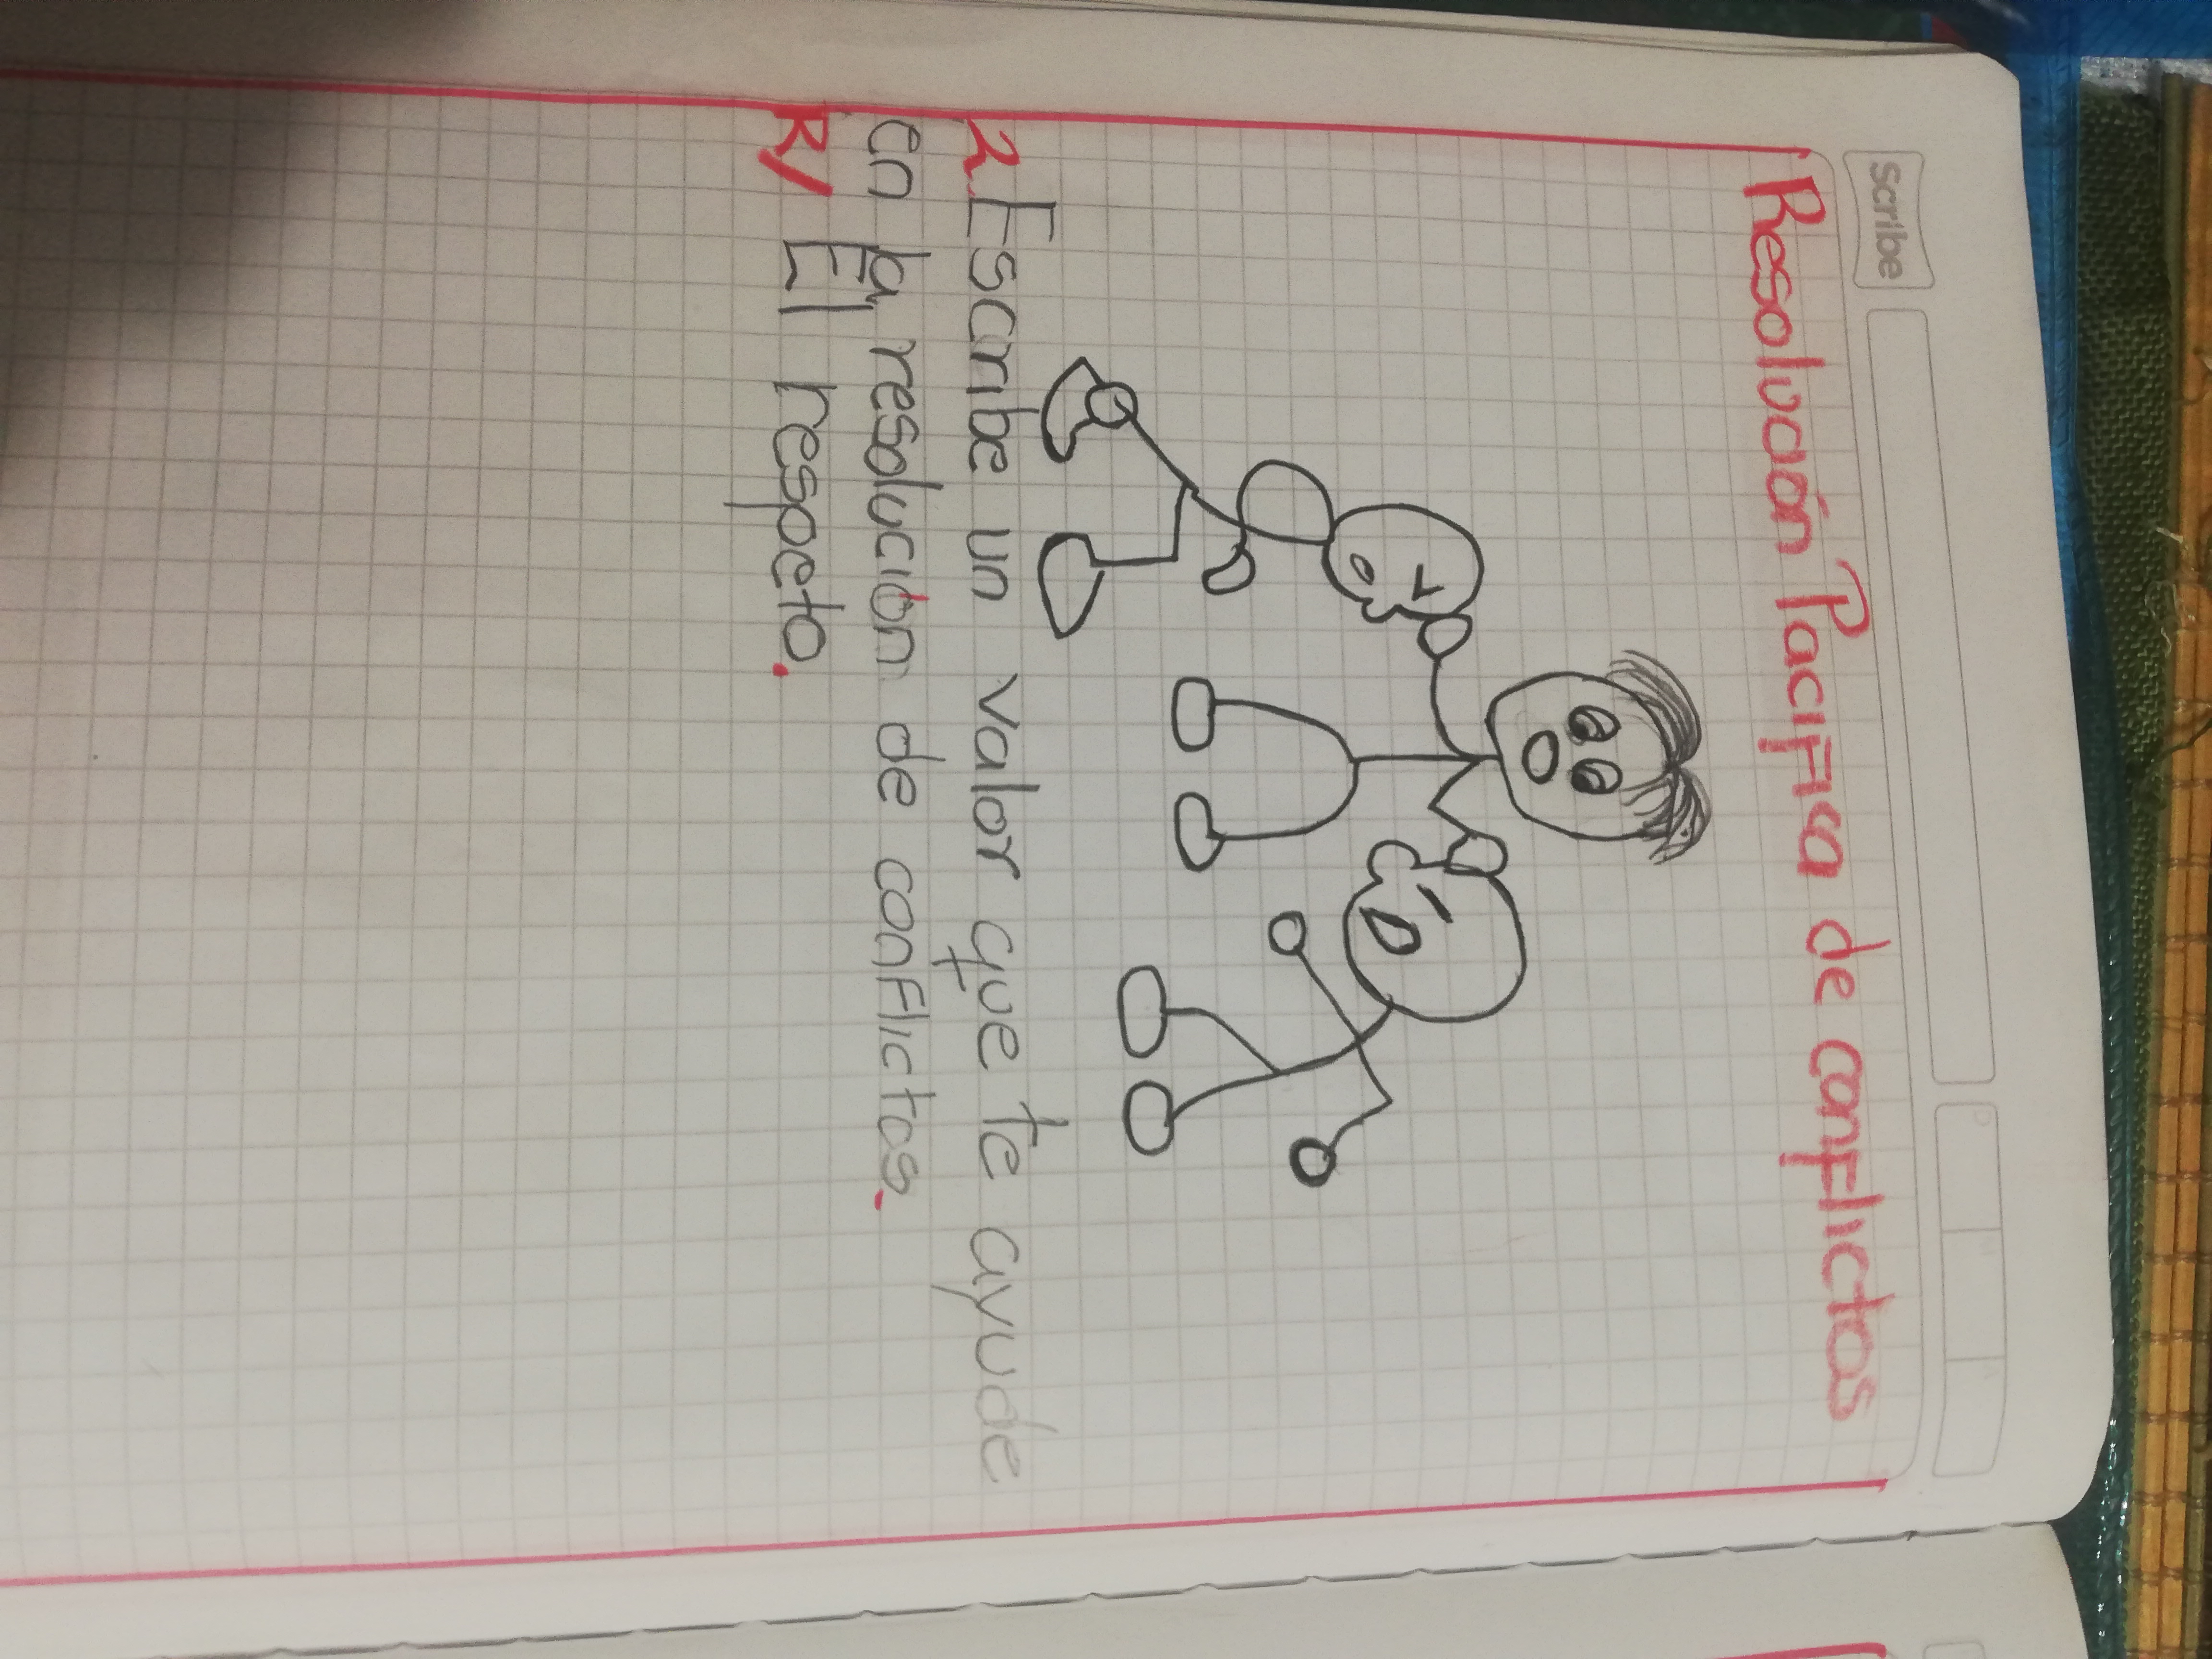 Scribe
D M A
Resolución Pacifica de conflictos
2. Escribe un valor que te ayude
en la resolución de conflictos.
R/ El respeto.